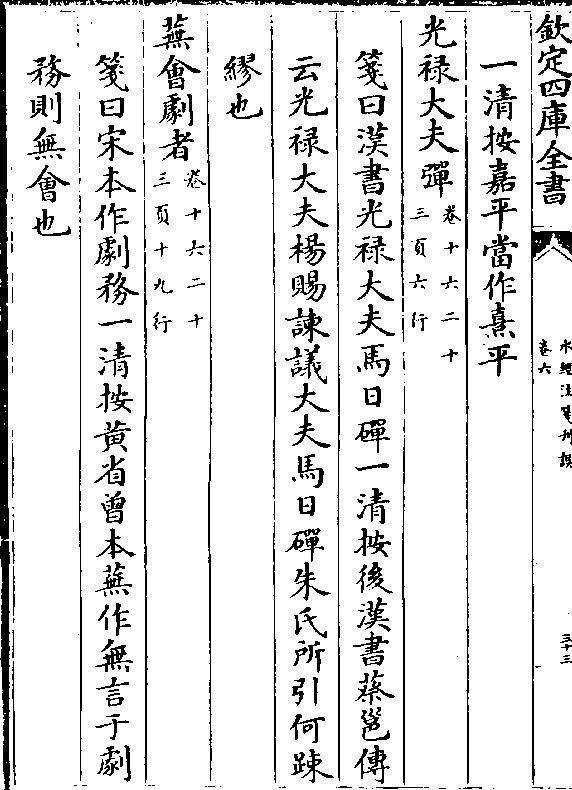 欽定四庫全書
水經注箋刋誤
卷六
三十三
一清按嘉平當作熹平
光禄大夫彈
卷十六二十
三頁六行
箋曰漢書光禄大夫馬日磾一清按後漢書蔡邕傳
云光禄大夫楊賜諫議大夫馬日磾朱氏所引何踈
繆也
蕪會劇者
卷十六二十
三頁十九行
箋曰宋本作劇務一清按黄省曾本蕪作無言于劇
務則無會也